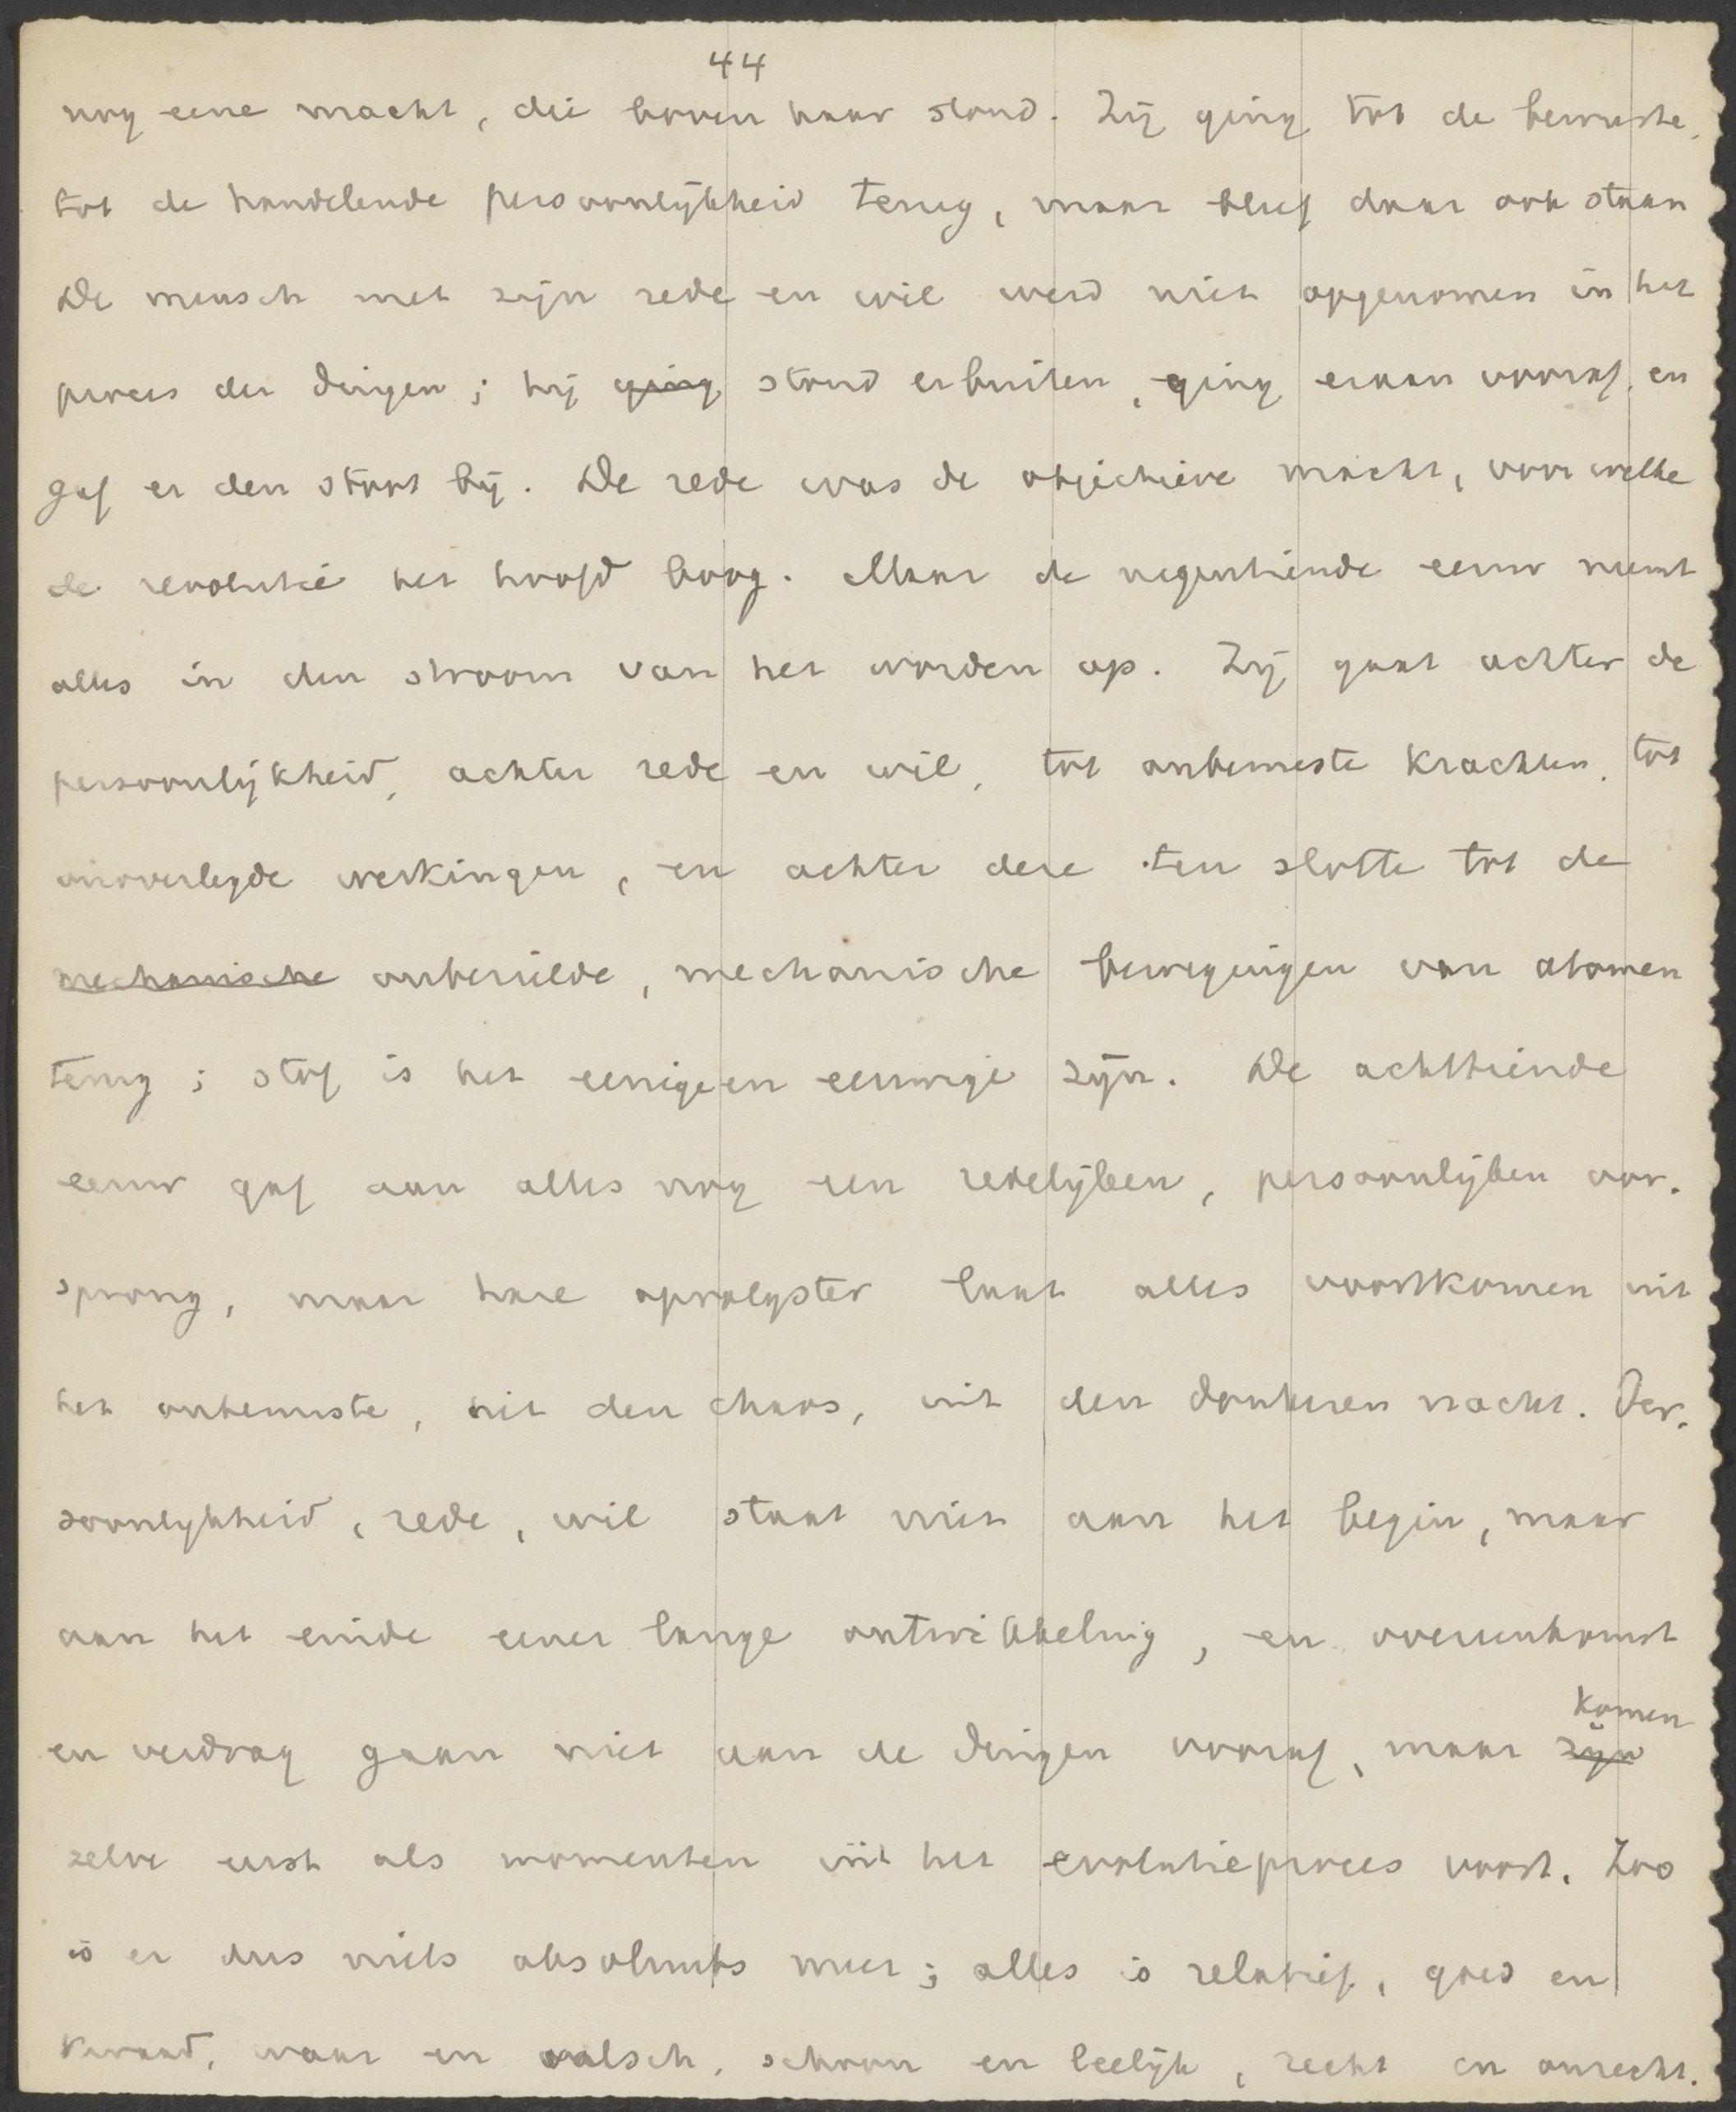 44
nog eene macht, die boven haar stond. Zij ging tot de bewuste,
tot de handelende persoonlijkheid terug, maar bleef daar ook staan
De mensch met zijn rede en wil werd niet opgenomen in het
proces der dingen; hij ging stond erbuiten, ging eraan vooraf, en
gaf er den stoot bij. De rede was de objectieve macht, voor welke
de revolutie het hoofd boog. Maar de negentiende eeuw neemt
alles in den stroom van het worden op. Zij gaat achter de
persoonlijkheid, achter rede en wil, tot onbewuste krachten, tot
onoverlegde werkingen, en achter deze ten slotte tot de
mechanische onbezielde, mechanische bewegingen van atomen
terug; stof is het eenige en eeuwige zijn. De achttiende
eeuw gaf aan alles nog een redelijken, persoonlijken oor-
sprong, maar hare opvolgster laat alles voortkomen uit
het onbewuste, uit den chaos, uit den donkeren nacht. Per-
soonlijkheid, rede, wil staat niet aan het begin, maar
aan het einde eener lange ontwikkeling, en overeenkomst
en verdrag gaan niet aan de dingen vooraf, maar zijn komen
zelve eerst als momenten uit het evolutieproces voort. Zoo
is er dus niets absoluuts meer; alles is relatief, goed en
kwaad, waar en valsch, schoon en leelijk, recht en onrecht.